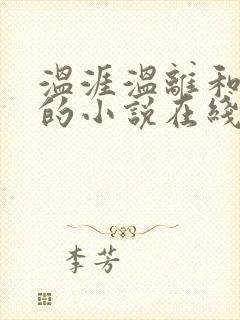 温涯温離和
的小説在綫
李芳